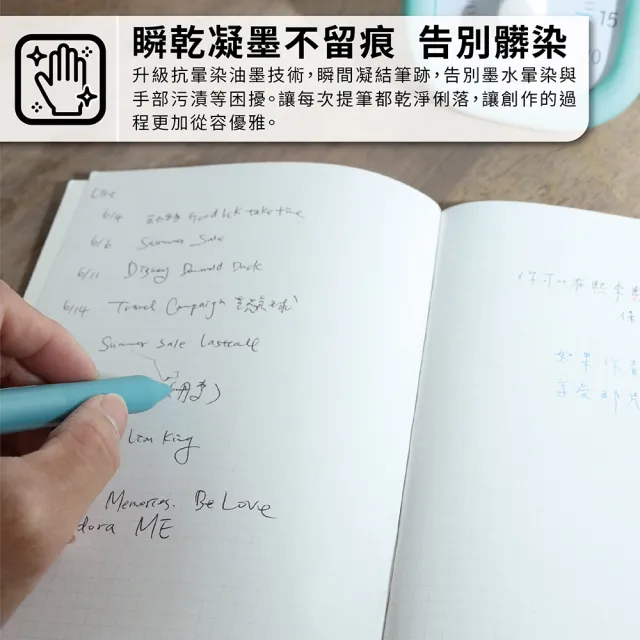 瞬乾凝墨不留痕 告別髒染
升級抗暈染油墨技術，瞬間凝結筆跡，告別墨水暈染與
手部污漬等困擾。讓每次提筆都乾淨俐落，讓創作的過
程更加從容優雅。
15
6/4 Good luck take time
6/6 Summer Sale
6/11 Disney Donald Duck
6/14 Travel Campaign
Summer Sale Lastcall
Lion King
Memories. Be Love
dora ME
你可以在
你
如果你
享受那片